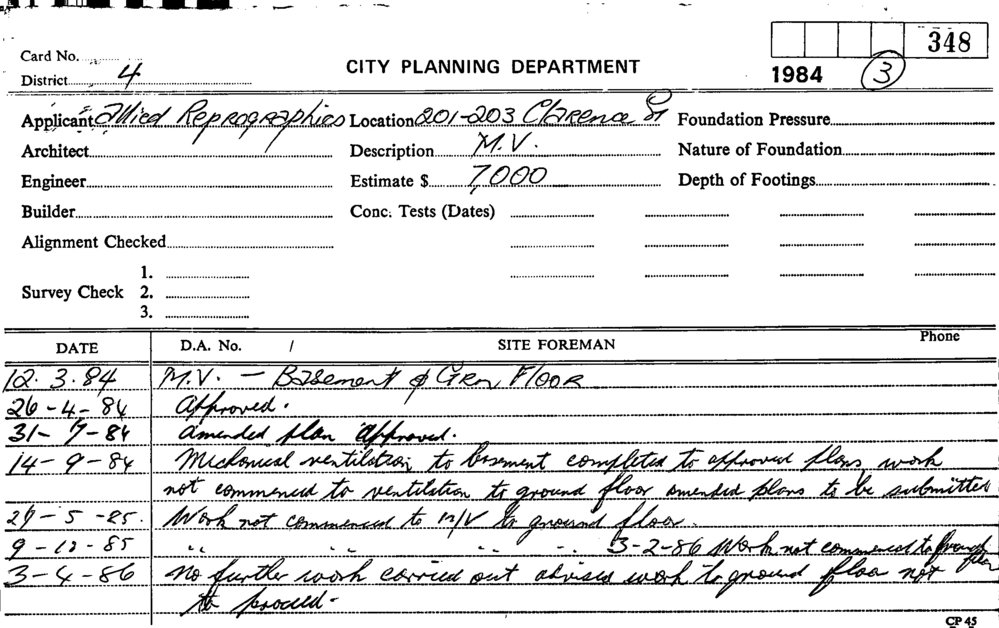 348
Card No.
CITY PLANNING DEPARTMENT
District 4
1984 3
Applicant Allied Reprographics Location 201-203 Clarence St Foundation Pressure
Architect Description M.V. Nature of Foundation
Engineer Estimate $ 7,000 Depth of Footings
Builder Conc. Tests (Dates)
Alignment Checked
1.
Survey Check 2.
3.
DATE D.A. No. / SITE FOREMAN Phone
12.3.84 M.V. – Basement & Grn Floor
26-4-84 Approved.
31-7-84 amended plan approved.
14-9-84 Mechanical ventilation to basement completed to approved plans, work
not commenced to ventilation to ground floor amended plans to be submitted
-5-85. Work not commenced to m/V to ground floor.
9-12-85 " " " " 3-2-86 Work not commenced to ground floor
3-4-86 No further work carried out advised work to ground floor not
to proceed-
CP 45